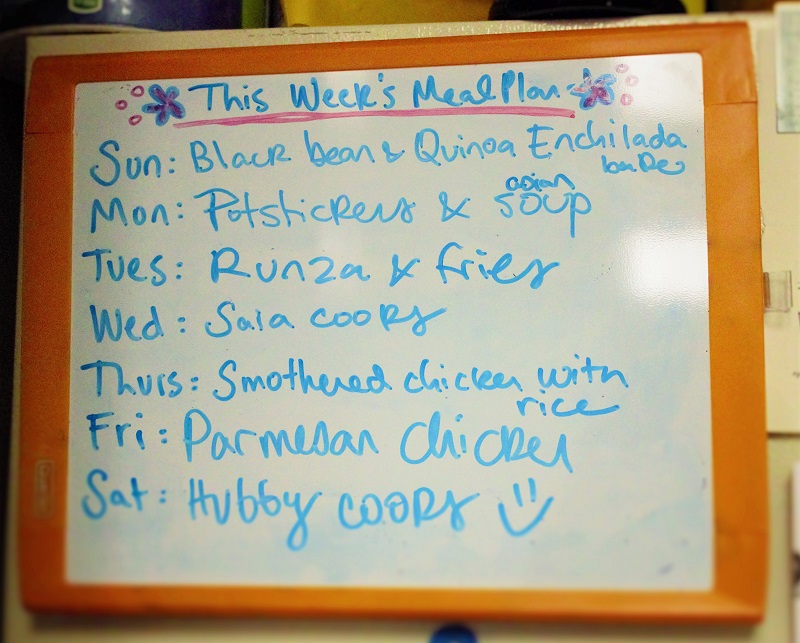 This Week's Meal Plan
Sun: Black bean & Quinoa Enchilada
bake
Mon: Potstickers & asian soup
Tues: Runza & fries
Wed: Saia cooks
Thurs: Smothered chicken with
rice
Fri: Parmesan Chicken
Sat: Hubby cooks